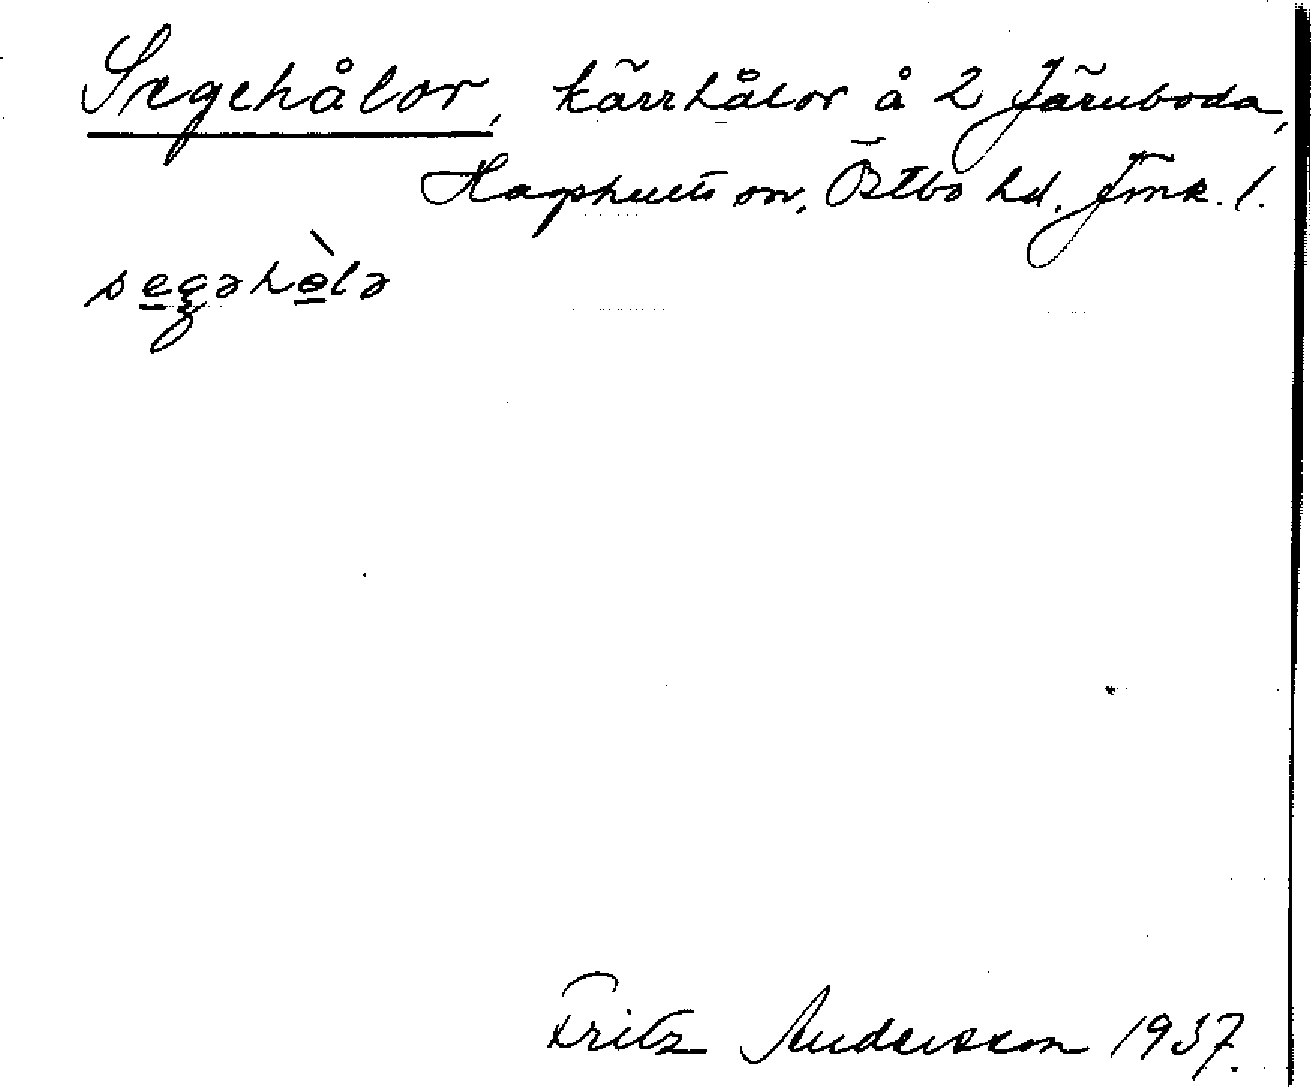 Segehålor, kärrhålor å 2 Järnboda,
Hagshults sn, Östbo hd. Jmk. l.
segəhòlə
Fritz Andersson 1937.